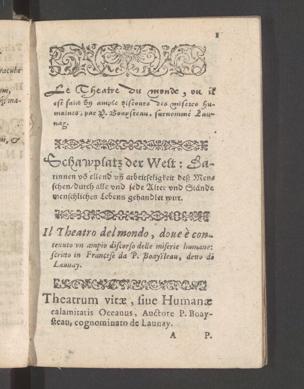 1
Le Theatre du monde, ou il
est faict vn ample discours des miseres hu-
maines, par P. Boaysteau, surnommé Lau-
nay.
Schawplatz der Welt: Da-
rinnen võ ellend vñ arbeitseligkeit deß Men-
schen/durch alle vnd jede Alter vnd Stände
menschlichen Lebens gehandlet wirt.
Il Theatro del mondo, doue è con-
tenuto vn ampio discorso delle miserie humane:
scritto in Francese da P. Boaysteau, detto di
Launay.
Theatrum vitæ, siue Humanæ
calamitatis Oceanus, Auctore P. Boay-
steau, cognominato de Launay.
A P.